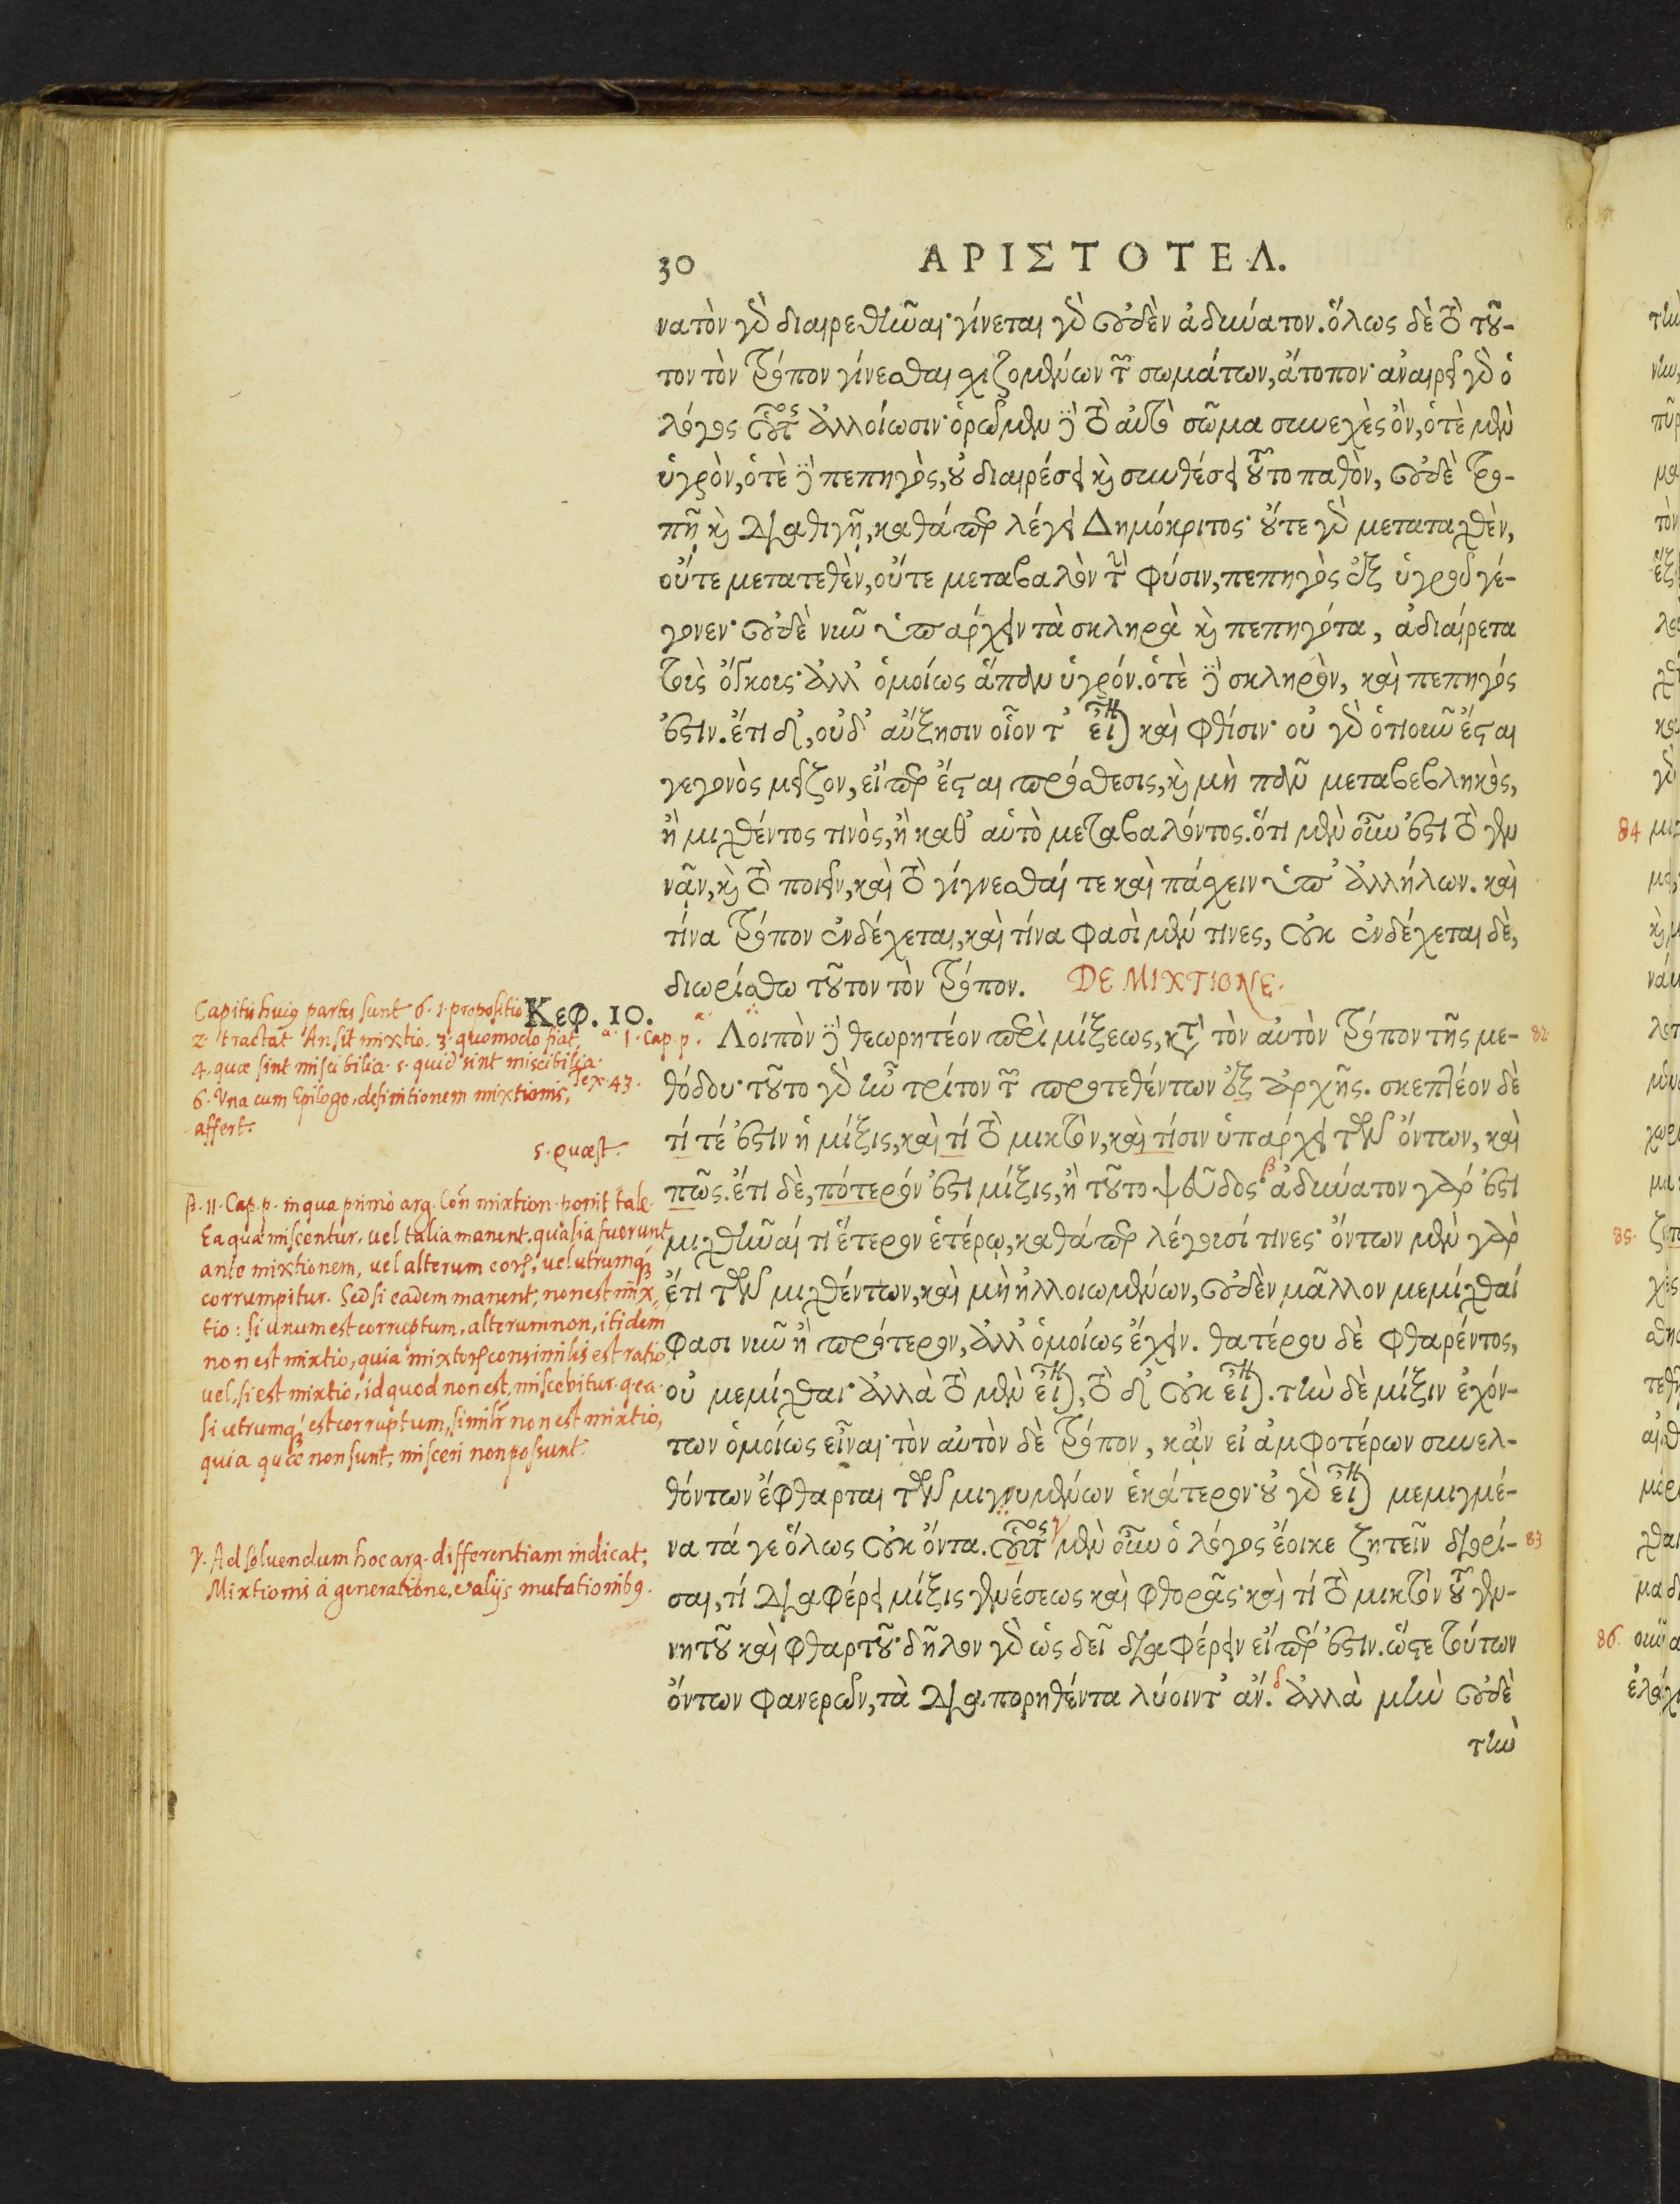 30
ΑΡΙΣΤΟΤΕΛ.
νατὸν γὸ διαιρεθῆναι· γίνεται γὸ οὐδὲν ἀδύνατον. ὅλως δὲ τὸ τοῦ-
τον τὸν τρόπον γίνεσθαι σχιζομένων τῶν σωμάτων, ἄτοπον· ἀναιρεῖ γὸ ὁ
λόγος οὗτος ἀλλοίωσιν· ὁρῶμεν δὲ τὸ αὐτὸ σῶμα συνεχὲς ὂν, ὁτὲ μὲν
ὑγρὸν, ὁτὲ δὲ πεπηγὸς, οὐ διαιρέσει καὶ συνθέσει τοῦτο παθὸν, οὐδὲ τρο-
πῇ καὶ διαθιγῇ, καθάπερ λέγει Δημόκριτος· οὔτε γὸ μεταταχθὲν,
οὔτε μετατεθὲν, οὔτε μεταβαλὸν τὴν φύσιν, πεπηγὸς ἐξ ὑγροῦ γέ-
γονεν· οὐδὲ νῦν ὑπάρχειν τὰ σκληρὰ καὶ πεπηγότα, ἀδιαίρετα
τοῖς ὄγκοις· ἀλλ' ὁμοίως ἅπαν ὑγρόν. ὁτὲ δὲ σκληρὸν, καὶ πεπηγός
ἐστιν. ἔτι δ', οὐδ' αὔξησιν οἷον τ' εἶναι καὶ φθίσιν· οὐ γὸ ὁτιοῦν ἔσται
γεγονὸς μεῖζον, εἴπερ ἔσται πρόσθεσις, καὶ μὴ πᾶν μεταβεβληκὸς,
ἢ μιχθέντος τινὸς, ἢ καθ' αὑτὸ μεταβαλόντος. ὅτι μὲν οὖν ἐστι τὸ γεν
νᾶν, καὶ τὸ ποιεῖν, καὶ τὸ γίγνεσθαί τε καὶ πάσχειν ὑπ' ἀλλήλων. καὶ
τίνα τρόπον ἐνδέχεται, καὶ τίνα φασὶ μέν τινες, οὐκ ἐνδέχεται δὲ,
διωρίσθω τοῦτον τὸν τρόπον. DE MIXTIONE.
Κεφ. 10.
Λοιπὸν δὲ θεωρητέον περὶ μίξεως, κατὰ τὸν αὐτὸν τρόπον τῆς με- 82
θόδου· τοῦτο γὸ ἦν τρίτον τῶν προτεθέντων ἐξ ἀρχῆς. σκεπτέον δὲ
τί τέ ἐστιν ἡ μίξις, καὶ τί τὸ μικτὸν, καὶ τίσιν ὑπάρχει τῶν ὄντων, καὶ
πῶς. ἔτι δὲ, πότερόν ἐστι μίξις, ἢ τοῦτο ψεῦδος· β ἀδύνατον γάρ ἐστι
μιχθῆναί τι ἕτερον ἑτέρῳ, καθάπερ λέγουσί τινες· ὄντων μὲν γὰρ
ἔτι τῶν μιχθέντων, καὶ μὴ ἠλλοιωμένων, οὐδὲν μᾶλλον μεμίχθαί
φασι νῦν ἢ πρότερον, ἀλλ' ὁμοίως ἔχειν. θατέρου δὲ φθαρέντος,
οὐ μεμίχθαι· ἀλλὰ τὸ μὲν εἶναι, τὸ δ' οὐκ εἶναι. τὴν δὲ μίξιν ἐχόν-
των ὁμοίως εἶναι· τὸν αὐτὸν δὲ τρόπον, κἂν εἰ ἀμφοτέρων συνελ-
θόντων ἔφθαρται τῶν μιγνυμένων ἑκάτερον· οὐ γὸ εἶναι μεμιγμέ-
να τά γε ὅλως οὐκ ὄντα. οὗτος γ μὲν οὖν ὁ λόγος ἔοικε ζητεῖν διορί- 83
σαι, τί διαφέρει μίξις γενέσεως καὶ φθορᾶς· καὶ τί τὸ μικτὸν τοῦ γεν-
νητοῦ καὶ φθαρτοῦ· δῆλον γὸ ὡς δεῖ διαφέρειν εἴπερ ἐστιν. ὥστε τούτων
ὄντων φανερῶν, τὰ διαπορηθέντα λύοιντ' ἄν. δ ἀλλὰ μὴν οὐδὲ
τὴν
Capitis huius partes sunt 6. 1. propositio
2. tractat An sit mixtio. 3. quomodo fiat. α. 1. Cap. p.
4. quæ sint miscibilia. 5. quid sint miscibilia.
6. Una cum Epilogo, definitionem mixtionis, Tex. 43.
affert.
5. quæst.
β. 11. Cap. p. in qua primo arg. Con mixtion. ponit tale.
Ea quæ miscentur, vel talia manent, qualia fuerunt
ante mixtionem, vel alterum eorum, vel utrumque
corrumpitur. Sed si eadem manent, non est mix,
tio: si unum est corruptum, alterum non, itidem
non est mixtio, quia mixtorum consimilis est ratio
vel, si est mixtio, id quod non est, miscebitur. q. e. a.
si utrumque est corruptum, similiter non est mixtio,
quia quæ non sunt, misceri non possunt.
γ. Ad solvendum hoc arg. differentiam indicat;
Mixtionis à generatione, e alijs mutationibus.
84
85.
86.